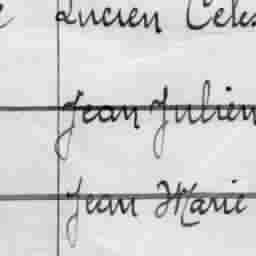 Lucien Celes
Jean Julien
Jean Marie